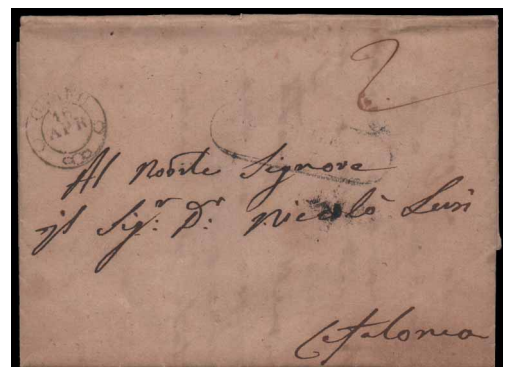 2
15
APR
Al Nobile Signore
il Sig.r D.r Nicolò Lusi
Cefalonia